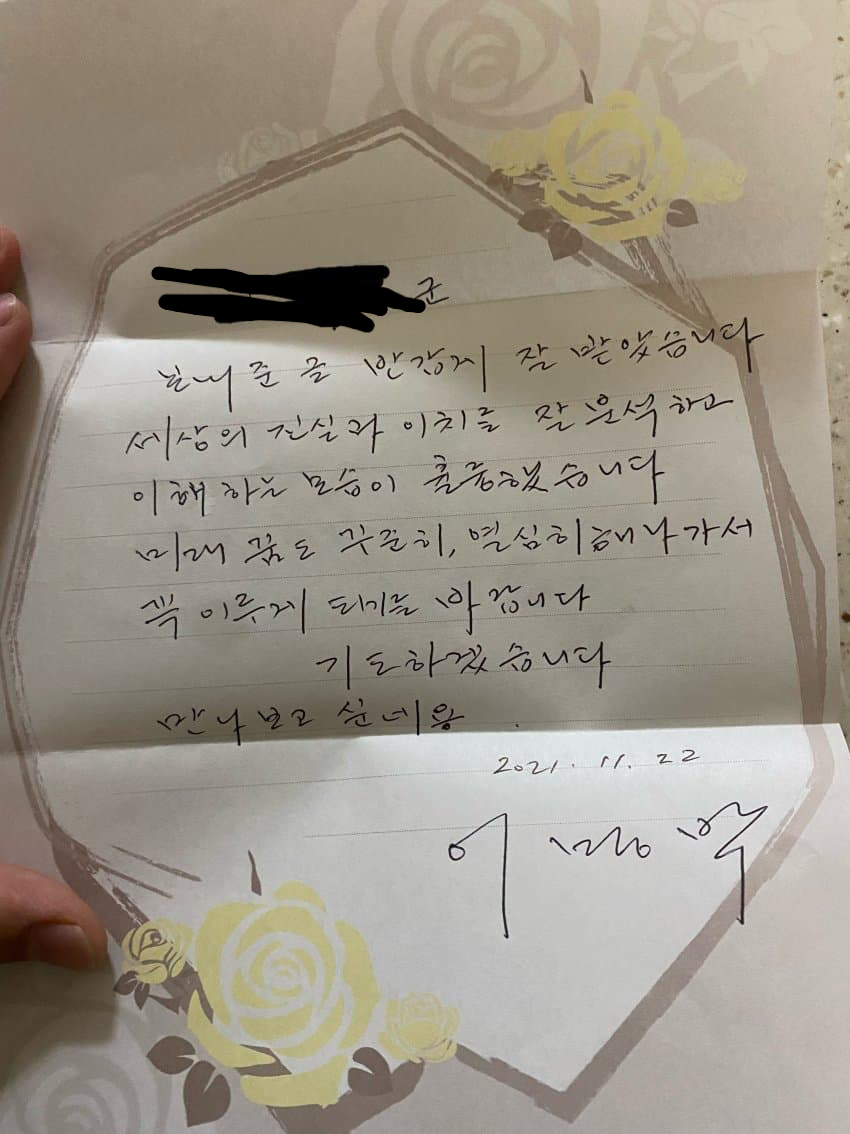 군
보내 준 글 반갑게 잘 받았습니다
세상의 진실과 이치를 잘 분석하고
이해 하는 모습이 훌륭했습니다
미래 꿈도 꾸준히, 열심히 해 나가서
꼭 이루게 되기를 바랍니다
기도하겠습니다
만나 보고 싶네용.
2021. 11. 22
이명박